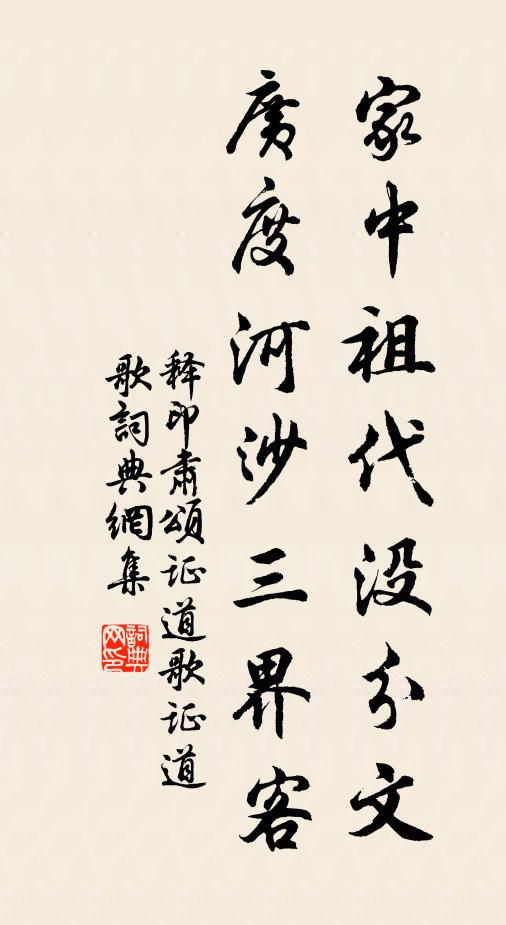 家中祖代没分文
廣度河沙三界客
释印肅頌证道歌证道
歌詞典網集
詞典
网印